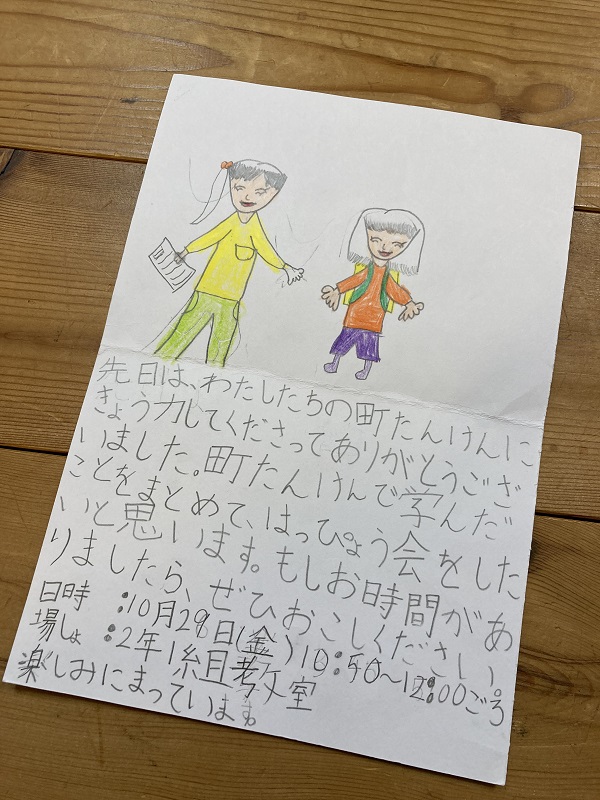 先日は、わたしたちの町たんけんに
きょう力してくださってありがとうござ
いました。町たんけんで学んだ
ことをまとめて、はっぴょう会をした
いと思います。もしお時間があ
りましたら、ぜひおこしください。
日時:10月29日(金)10:50~12:00ごろ
場しょ:2年1組教室
楽しみにまっています。